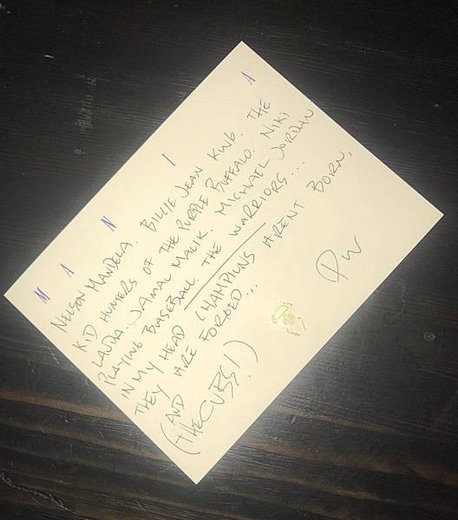 M A N I A
NELSON MANDELA. BILLIE JEAN KING. THE
KID HUNTERS OF THE PURPLE BUFFALO. NIKI
LAUDA. JAMAL MALIK. MICHAEL JORDAN
PLAYING BASEBALL. THE WARRIORS...
IN MY HEAD CHAMPIONS ARENT BORN,
THEY ARE FORGED...
(AND
THE CUBS!)
PW